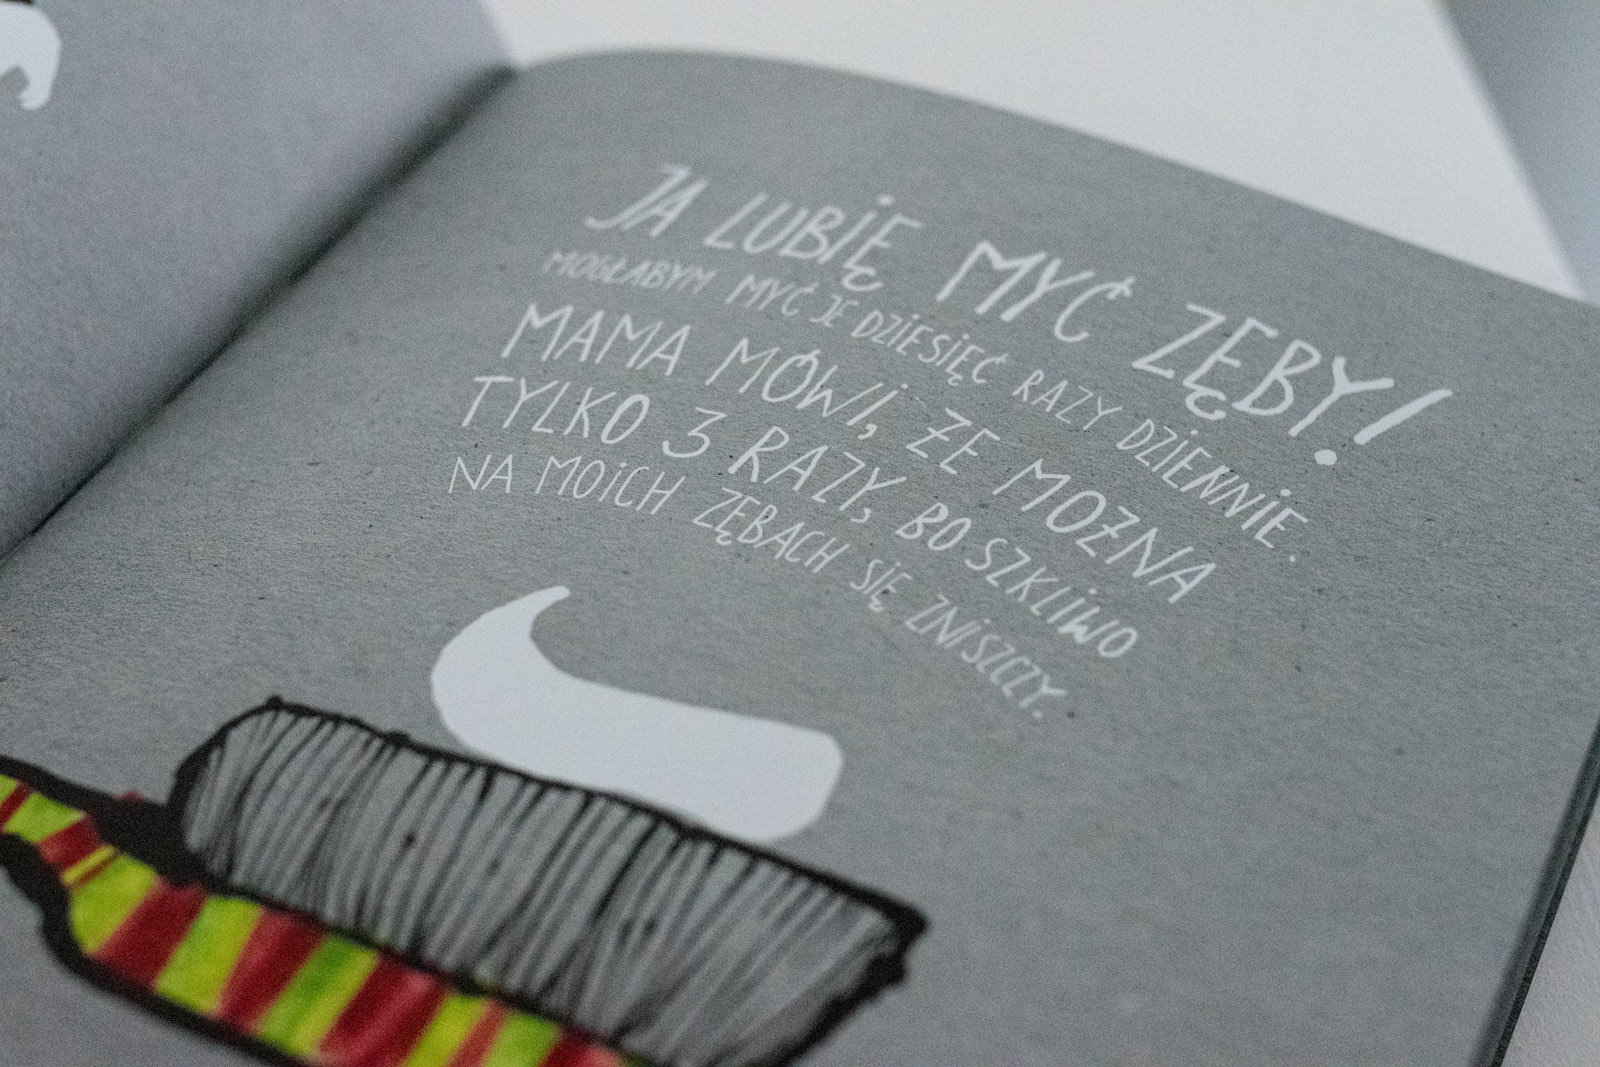 JA LUBIĘ MYĆ ZĘBY!
MOGŁABYM MYĆ JE DZIESIĘĆ RAZY DZIENNIE.
MAMA MÓWI, ŻE MOŻNA
TYLKO 3 RAZY, BO SZKLIWO
NA MOICH ZĘBACH SIĘ ZNISZCZY.